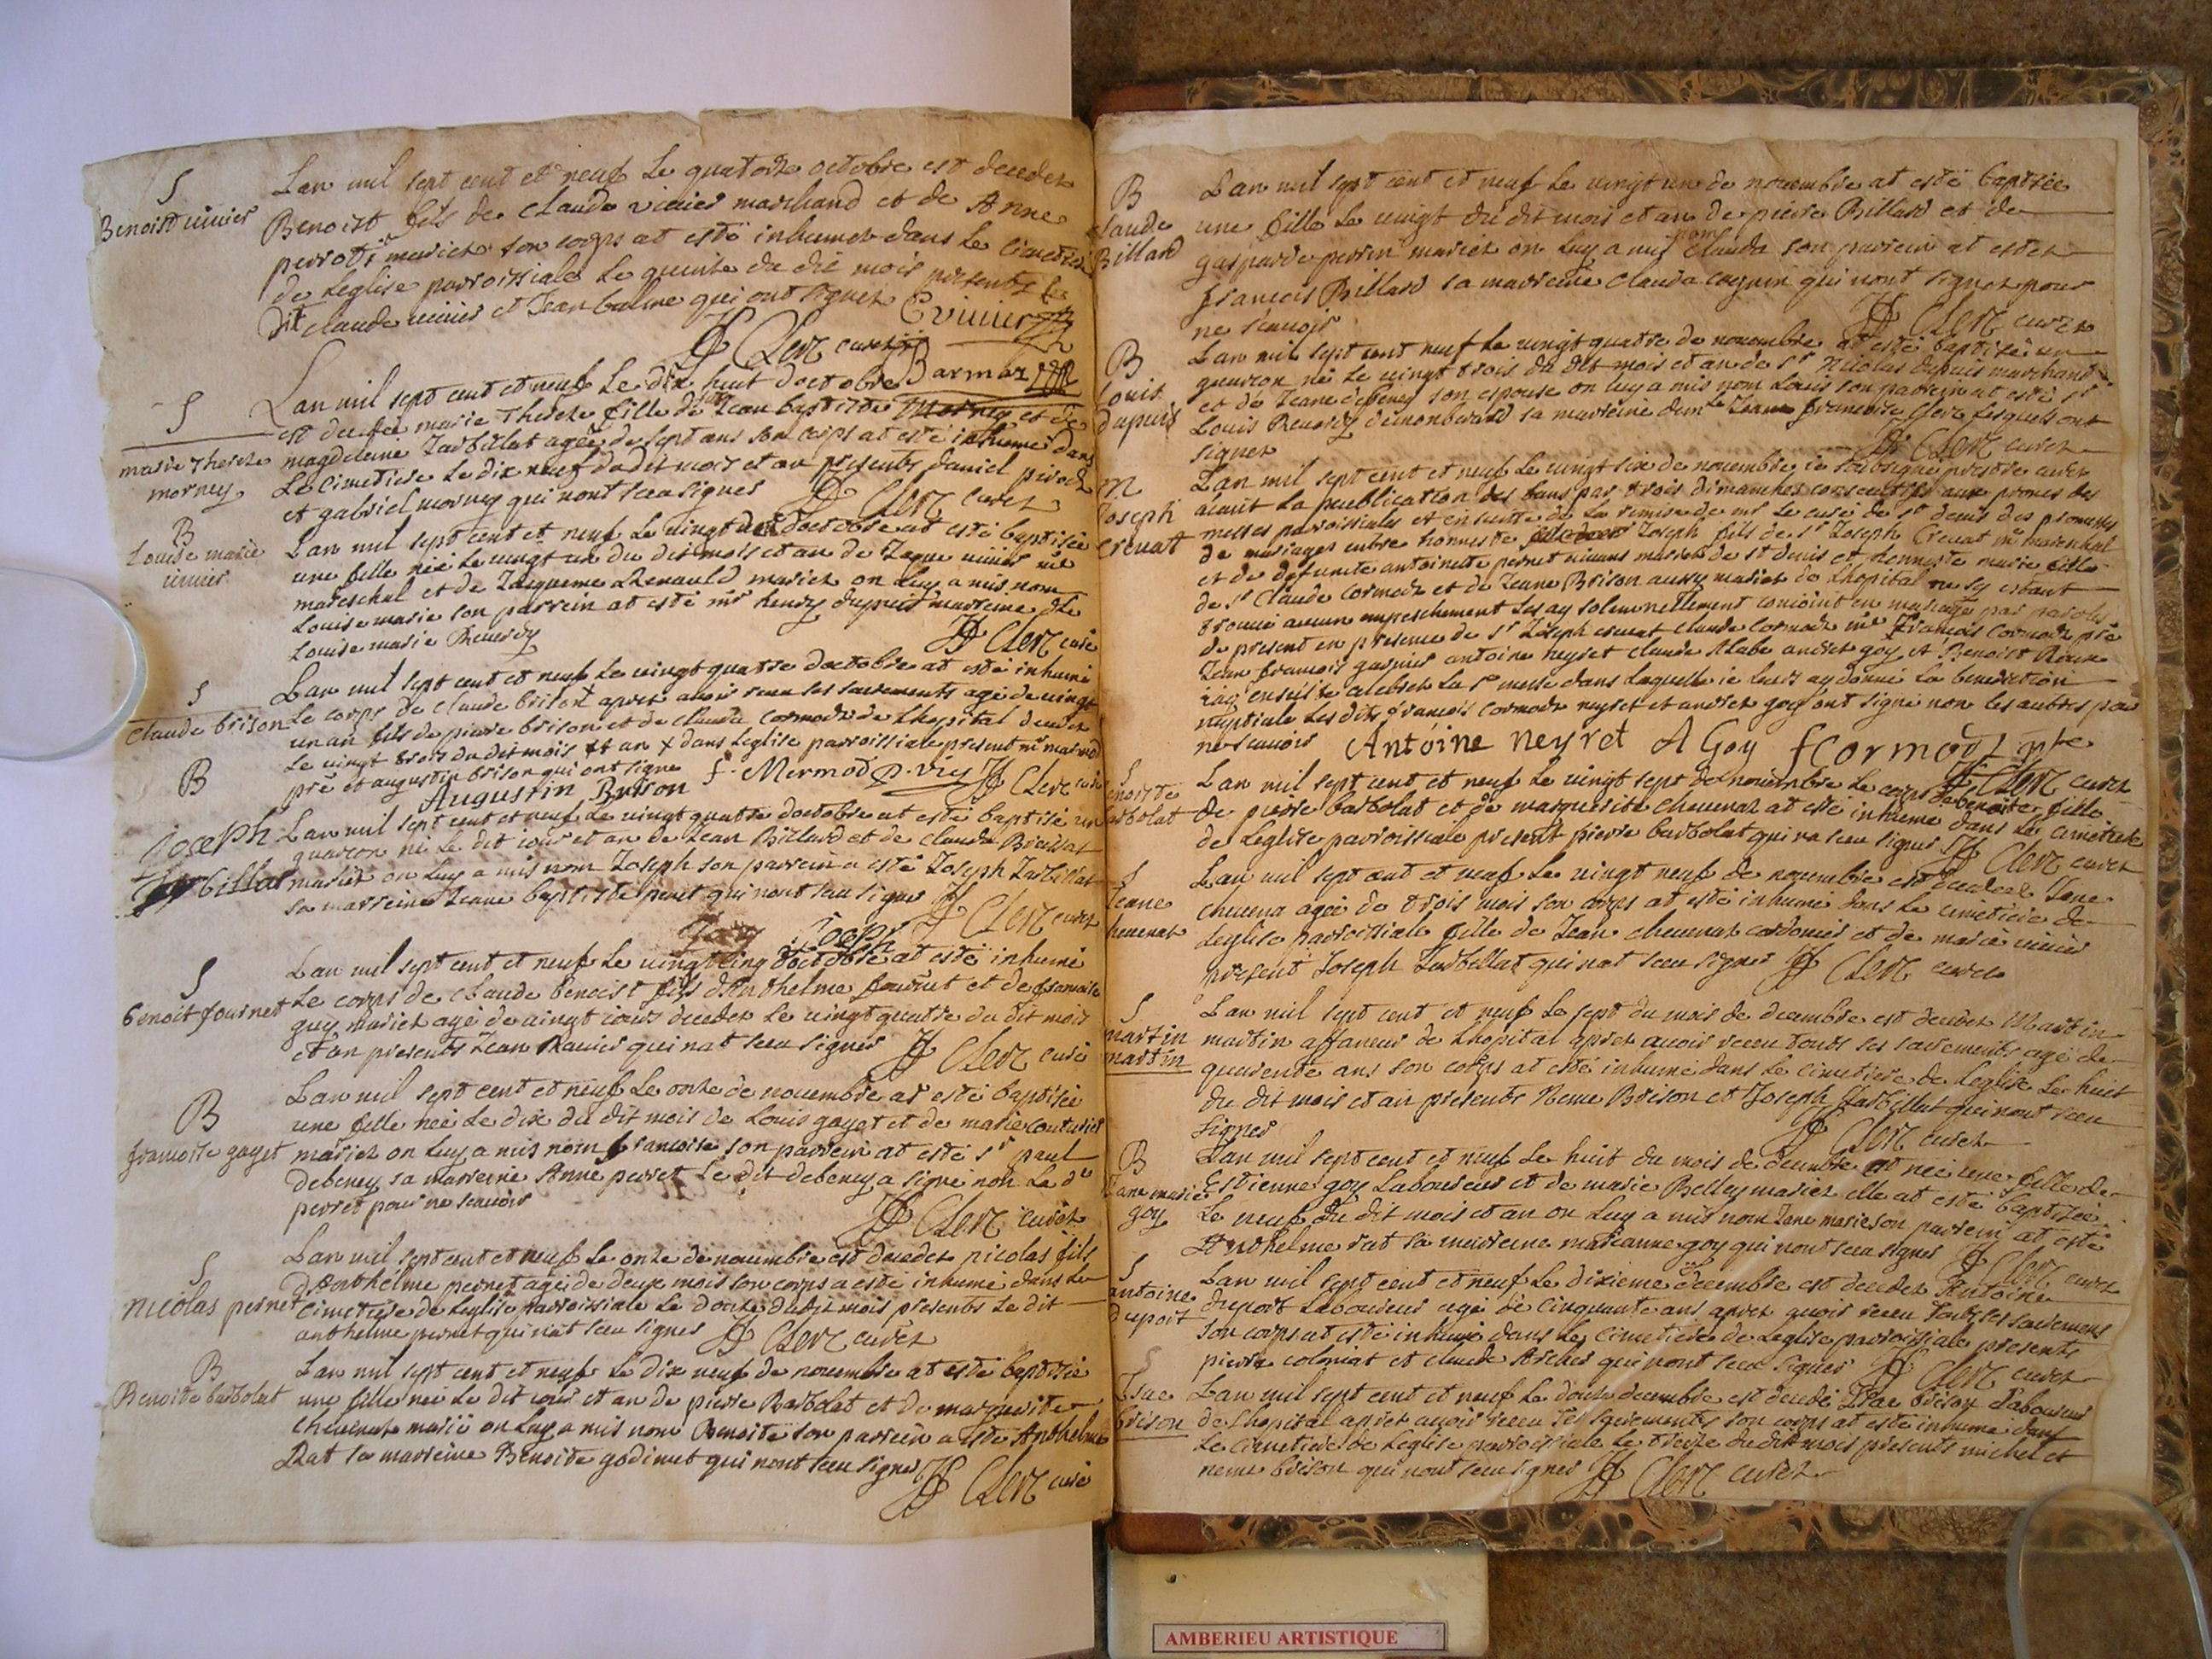 S
Benoist uinier
Lan mil sept cent et neuf Le quatorze octobre est decedez
Benoist fils de claude vinier marchand et de Anne
perrot mariez son corps at esté inhumez dans Le cimetiere
de Leglise parroissiale Le quinze du dit mois presents Le
Dit claude uinier et Jean balme qui ont signez Cvinier
Clerc curez Barmaz
S
marie Therese
morney
Lan mil sept cent et neuf Le dix huit doctobre
est decedée marie Therese fille de Jean baptiste Morney et de
magdeleine Jarbillat agée de sept ans son corps at esté inhumé dans
Le cimetiere Le dix neuf dudit mois et an presents daniel
et gabriel morney qui nont sceu signer Clerc curez
B
Louise marie
uinier
Lan mil sept cent et neuf Le vingt doctobre at esté baptisée
une fille née Le vingt un du dit mois et an de uinier me
mareschal et de Jaqueme Renauld mariez on Luy a mis nom
Louise marie son parrein at esté mr henry dupuis marreine dle
Louise marie Reuerdy Clerc curé
S
Claude brison
Lan mil sept cent et neuf Le vingt quatre doctobre at esté inhumé
Le corps de claude brison aprez auoir receu ses sacrements agé de vingt
un an fils de pierre brison et de claude Cormode de Lhopital decedez
Le vingt trois du dit mois et an dans Leglise parroissiale present mr mermod
pre et augustin brison qui ont signe f. Mermod p. vic Clerc curé
Augustin Brison
B
joseph
Jarbillat
Lan mil sept cent et neuf Le vingt quatre doctobre at esté baptisé un
guarcon né Le dit iour et an de Jean Billard et de claude
mariez on Luy a mis nom Joseph son parrein a esté Joseph Jarbillat
sa marreine Jeane baptiste qui nont sceu signer Clerc curez
joseph
S
benoit fournet
Lan mil sept cent et neuf Le vingt cinq doctobre at esté inhumé
Le corps de claude benoist fils dAnthelme fournet et de francoise
guy mariez agé de vingt iours decedez Le vingt quatre du dit mois
et an presents Jean Rauier qui nat sceu signer Clerc curé
B
francoise gayet
Lan mil sept cent et neuf Le onze de nouembre at esté baptisée
une fille née Le dix du dit mois de Louis gayet et de marie couturier
mariez on Luy a mis nom francoise son parrein at esté sr paul
debeney sa marreine Anne perret Le dit debeney a signé non La dte
perret pour ne scauoir Clerc curez
S
nicolas pernet
Lan mil sept cent et neuf Le onze de nouembre est decedez nicolas fils
dAnthelme pernet agé de deux mois son corps a esté inhumé dans Le
cimetiere de Leglise parroissiale Le douze dudit mois presents Le dit
anthelme pernet qui nat sceu signer Clerc curez
B
Benoite barbolat
Lan mil sept cent et neuf Le dix neuf de nouembre at esté baptisée
une fille née Le dit iour et an de pierre Barbolat et de marguerite
cheuenat mariés on Luy a mis nom Benoite son parrein a esté Anthelme
Rat sa marreine Benoite godinet qui nont sceu signer Clerc curé
B
claude
Billard
Lan mil sept cent et neuf Le vingt un de nouembre at esté baptisée
une fille Le vingt du dit mois et an de pierre Billard et de
gasparde perrin mariez on Luy a mis nom Claude son parrein at estez
francois Billard sa marreine Claude coynin qui nont signez pour
ne scauoir Clerc curez
B
Louis
dupuis
Lan mil sept cent neuf Le vingt quatre de nouembre at esté baptisé un
guarcon né Le vingt trois du dit mois et an de sr Nicolas dupuis marchand
et de Jeane debeney son espouse on luy a mis nom Louis son parrein at esté sr
Louis Reuerdy sa marreine Jeane francoise Clerc Lesquels ont
signez Clerc curez
M
Joseph
Creuat
Lan mil sept cent et neuf Le vingt six de nouembre ie soubsigné prestre curez
aiant La publication des bans par trois dimanches consecutifs aux prones des
messes parroissiales et ensuite de La remise de mr Le curé de st denis des promesses
de mariages entre honneste Joseph fils de sr Joseph Creuat me mareschal
et de defuncte antoinette pernet uiuans mariez de st denis et honneste marie fille
de sr Claude Cormode et de Jeane Brison aussy mariez de Lhopital ne sy estant
trouué aucun empeschement Les ay solemnellement conioint en mariage par paroles
de present en presence de sr Joseph creuat claude Cormode me francois Cormode pre
Jean francois gasnier antoine neyret claude Rlabe andrez goy et Benoist Roux
iay ensuite celebrez La ste messe dans Laquelle ie leurs ay donné La benediction
nuptiale Les dits francois Cormode neyret et andrez goy ont signé non les autres pour
ne scauoir Antoine neyret A Goy fCormoz pbre
Clerc curez
S
benoiste
barbolat
Lan mil sept cent et neuf Le vingt sept de nouembre Le corps de benoite fille
de pierre barbolat et de marguerite cheuenat at esté inhumé dans Le cimetiere
de Leglise parroissiale present pierre barbolat qui na sceu signer Clerc curez
S
Jeane
cheuenat
Lan mil sept cent et neuf Le vingt neuf de nouembre est decedée Jane
cheuena agée de trois mois son corps at esté inhumé dans Le cimetiere de
Leglise parroissiale fille de Jean cheuenat cordonier et de marie uinier
present Joseph Jarbillat qui nat sceu signer Clerc curez
S
martin
martin
Lan mil sept cent et neuf Le sept du mois de decembre est decedez Martin
martin affaneur de Lhopital aprez auoir receu touts ses sacrements agé de
quarente ans son corps at esté inhumé dans Le cimetiere de Leglise Le huit
du dit mois et an presents Reme Brison et Joseph Jarbillat qui nont sceu
signer Clerc curez
B
Jane marie
goy
Lan mil sept cent et neuf Le huit du mois de decembre est née une fille de
Estienne goy Laboureur et de marie Belley mariez elle at esté baptisée
Le neuf du dit mois et an on Luy a mis nom Jane marie son parrein at esté
Anthelme rat sa marreine marianne goy qui nont sceu signer Clerc curez
S
antoine
duport
Lan mil sept cent et neuf Le dixieme decembre est decedez Antoine
duport Laboureur agé de Cinquante ans aprez auoir receu touts ses sacremens
son corps at esté inhumé dans Le cimetiere de Leglise parroissiale presents
pierre coloniat et claude Archer qui nont sceu signer Clerc curez
S
Isac
brison
Lan mil sept cent et neuf Le douze decembre est decedé Isac brison Laboureur
de Lhopital aprez auoir receu ses sacrements son corps at esté inhumé dans
Le cimetiere de Leglise parroissiale Le treize du dit mois presents michel et
reme brison qui nont sceu signer Clerc curez
AMBERIEU ARTISTIQUE